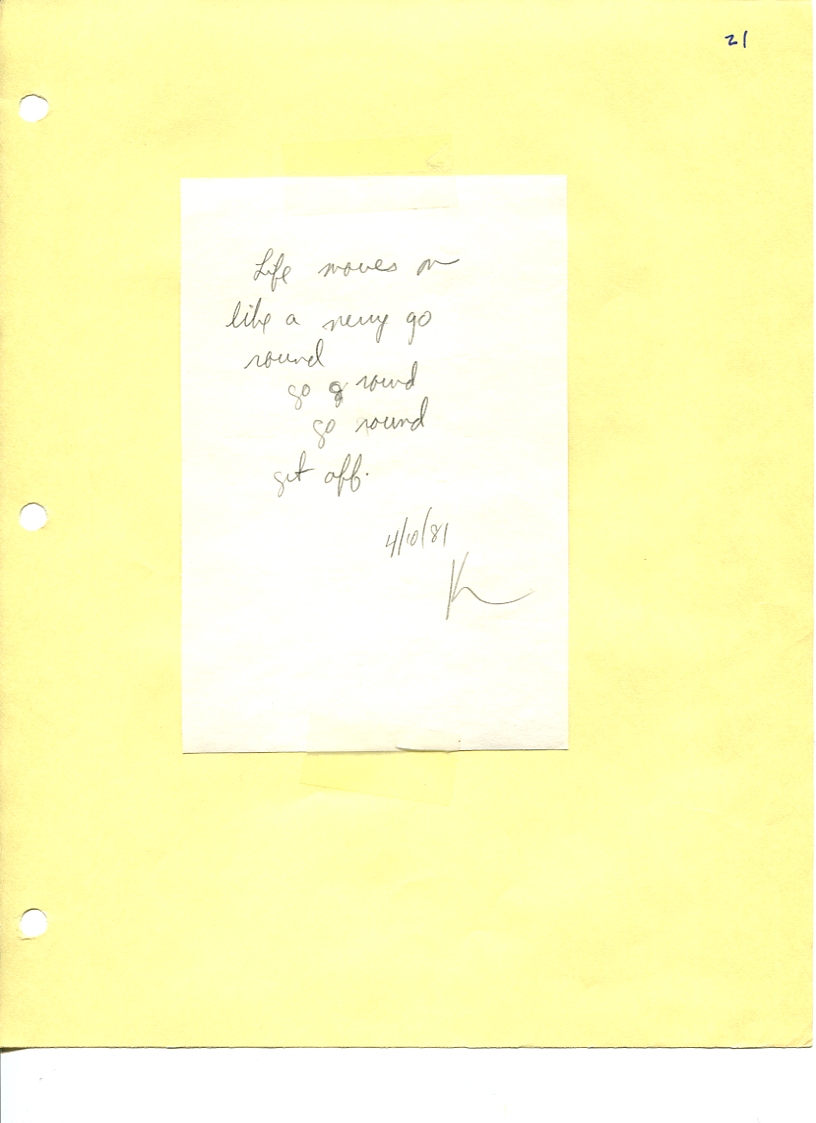 21
Life moves on
like a merry go
round
go round
go round
get off.
4/10/81
K